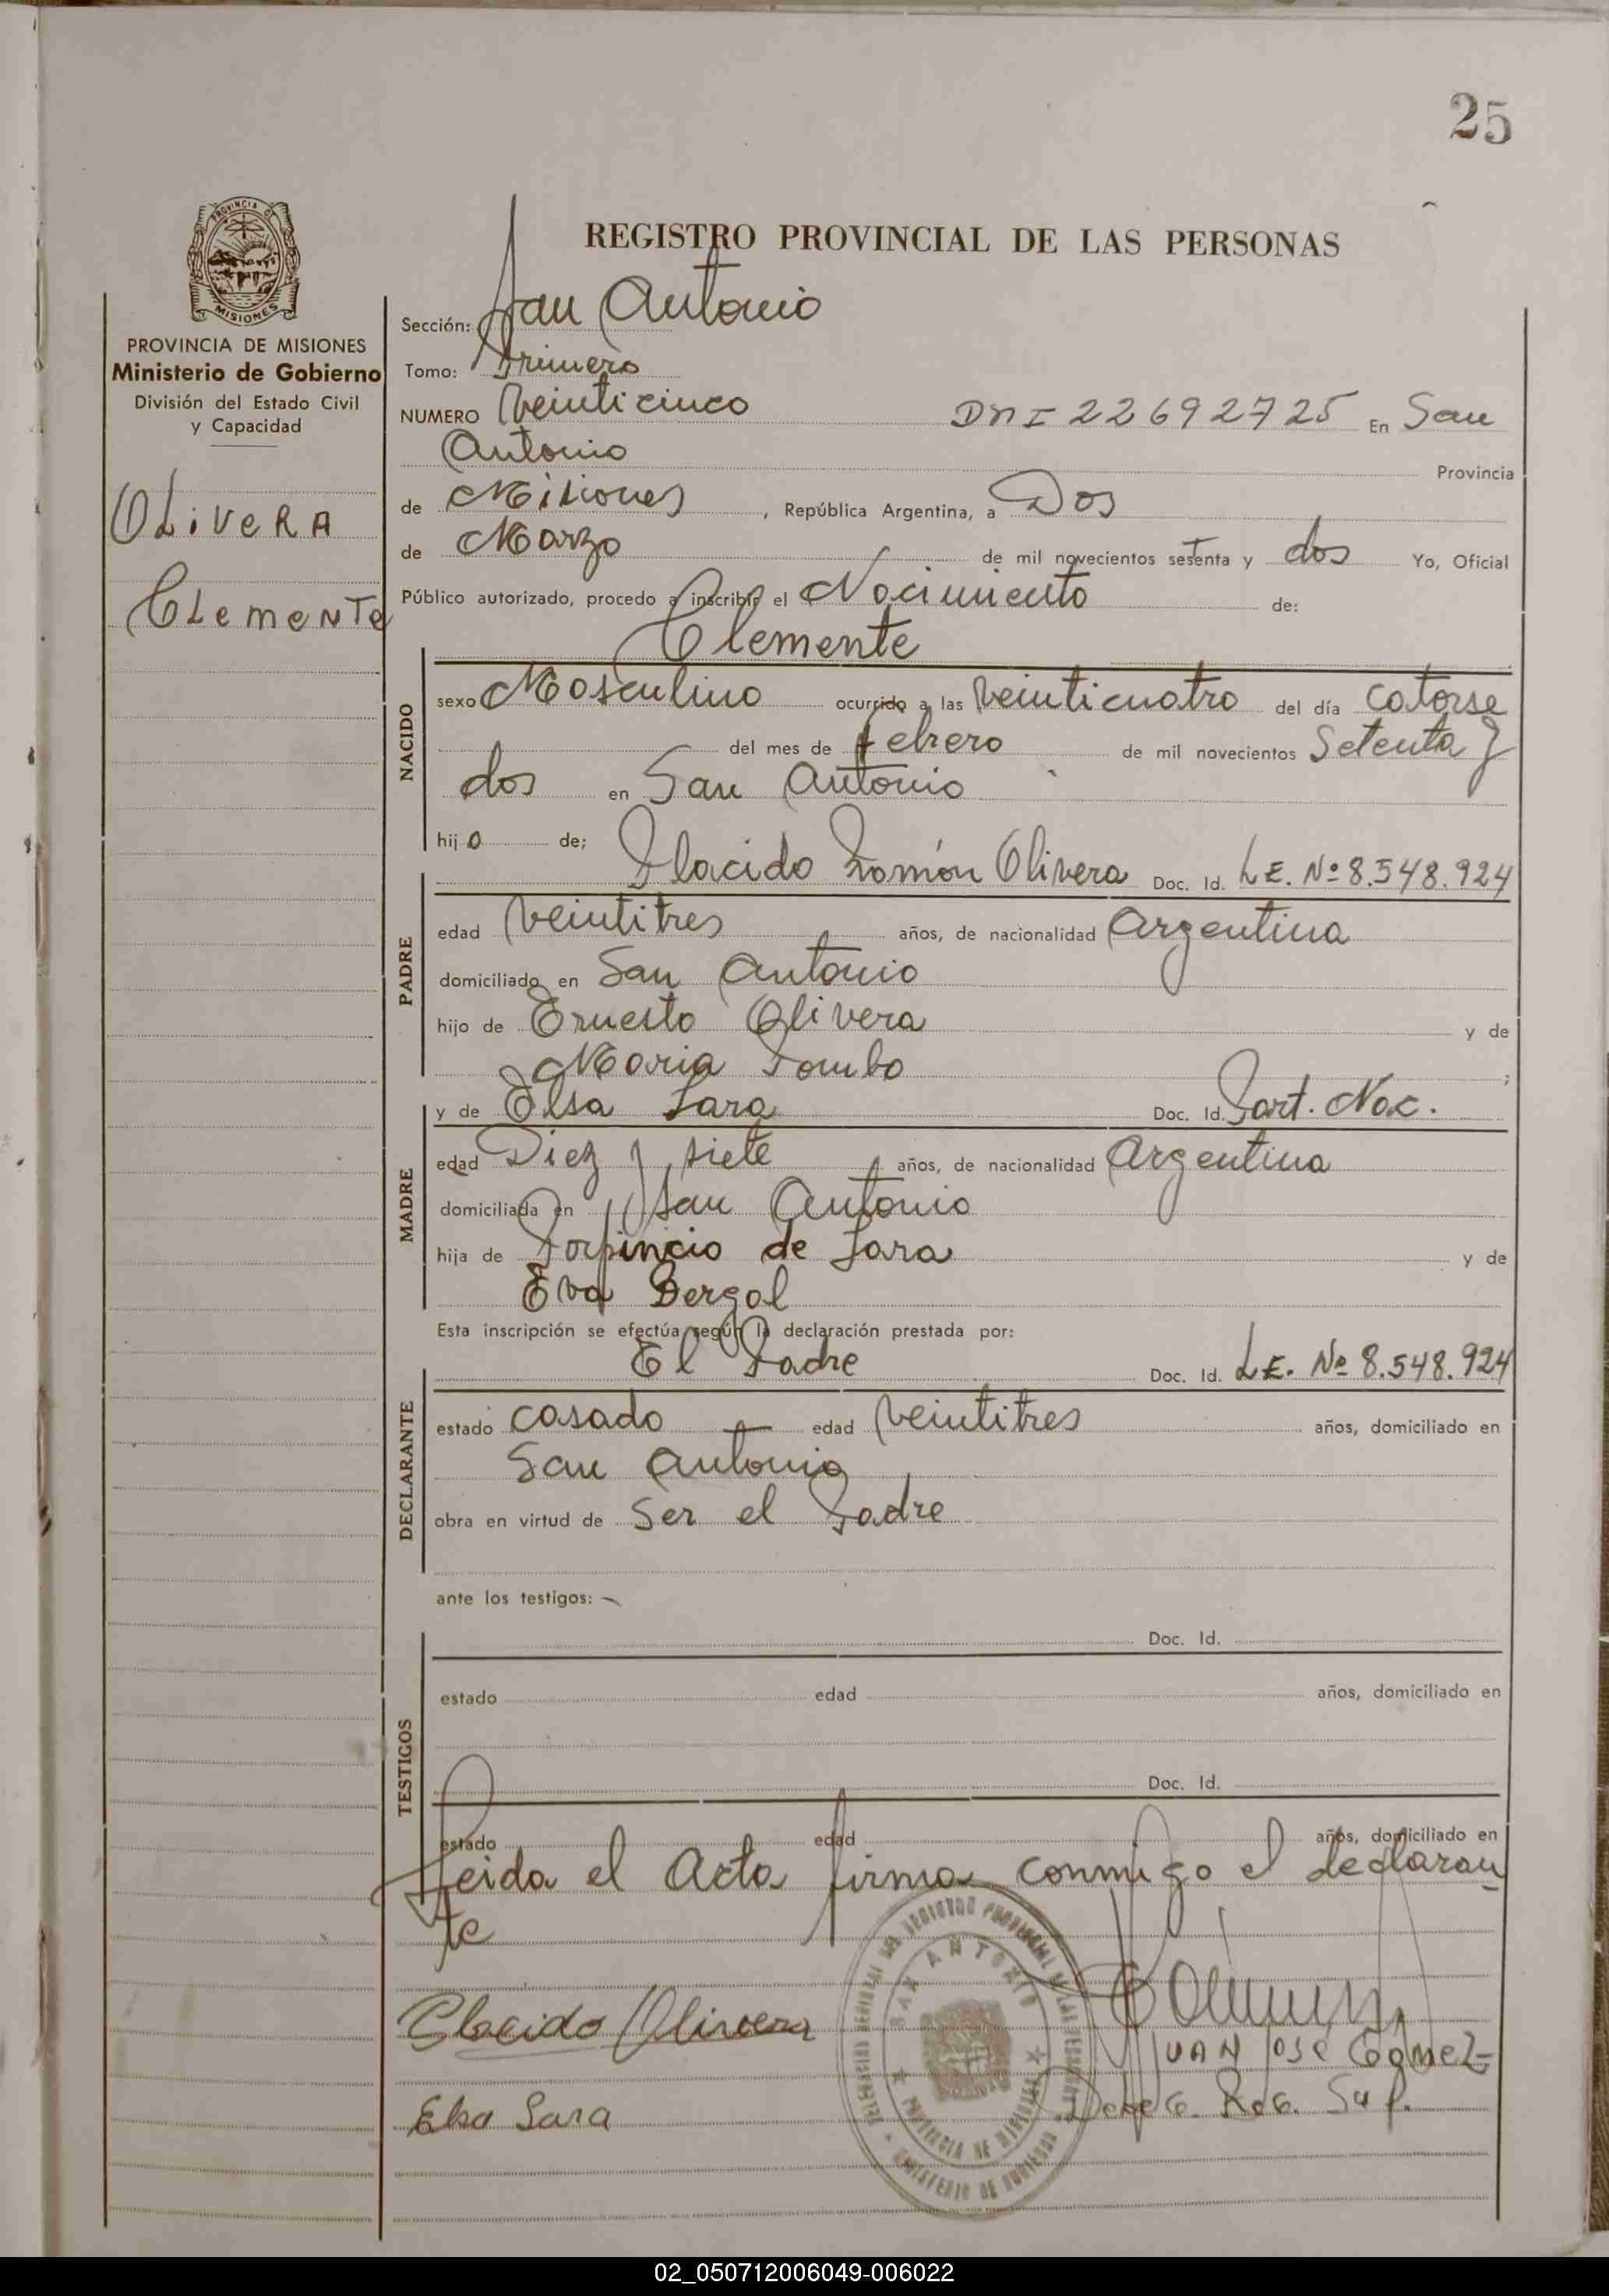 25
REGISTRO PROVINCIAL DE LAS PERSONAS
PROVINCIA DE MISIONES
Ministerio de Gobierno
División del Estado Civil
y Capacidad
OLIVERA
CLEMENTE
Sección: San Antonio
Tomo: Primero
NUMERO Veinticinco DNI 22692725 En San
Antonio Provincia
de Misiones, República Argentina, a Dos
de Marzo de mil novecientos setenta y dos Yo, Oficial
Público autorizado, procedo a inscribir el Nacimiento de:
Clemente
NACIDO
sexo Masculino ocurrido a las veinticuatro del día catorse
del mes de febrero de mil novecientos Setenta y
dos en San Antonio
hijo de;
Placido Ramón Olivera Doc. Id. L.E. Nº 8.548.924
PADRE
edad veintitres años, de nacionalidad Argentina
domiciliado en San Antonio
hijo de Ernesto Olivera y de
Maria Pombo ;
y de Elsa Lara Doc. Id. Part. Nac.
MADRE
edad Diez y siete años, de nacionalidad Argentina
domiciliada en San Antonio
hija de de Lara y de
Eva
Esta inscripción se efectúa según la declaración prestada por:
El Padre Doc. Id. L.E. Nº 8.548.924
DECLARANTE
estado casado edad veintitres años, domiciliado en
San Antonio
obra en virtud de Ser el Padre
ante los testigos:
TESTIGOS
Doc. Id.
estado edad años, domiciliado en
Doc. Id.
estado edad años, domiciliado en
Leida el Acta firma conmigo el declaran
te
Placido Olivera
JUAN JOSE GOMEZ
Elsa Lara
SAN ANTONIO
PROVINCIA DE MISIONES
MINISTERIO DE GOBIERNO
02_050712006049-006022